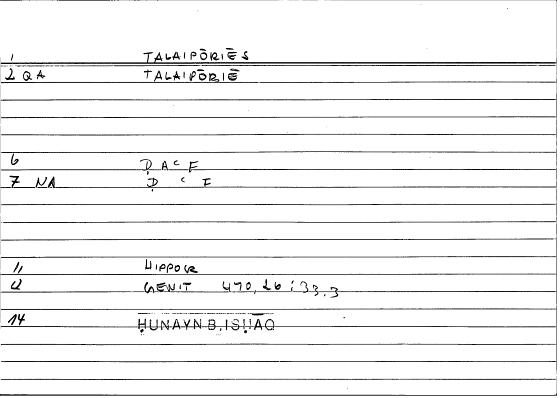 1 TALAIPŌRIĒS
2 QA TALAIPŌRIĒ
6 ḌAᶜF
7 NA Ḍ ᶜ F
11 HIPPOCR
12 GENIT 470,26 ; 33.3
14 ḤUNAYN B. ISḤĀQ